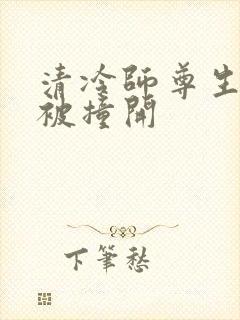 清冷師尊生
被撞開
下筆愁